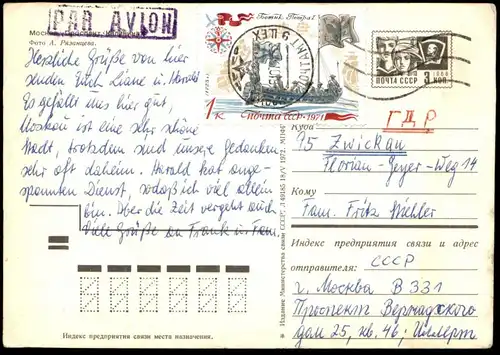 PAR AVION
Москва. Проспект Калинина
Фото А. Рязанцева.
Herzliche Grüße von hier
senden Euch Liane u. Harald
Es gefällt mir hier gut,
Moskau ist eine sehr schöne
Stadt, trotzdem sind unsere Gedanken
sehr oft daheim. Harald hat ange-
spannten Dienst, sodaß ich viel allein
bin. Aber die Zeit vergeht auch
Viele Grüße an Frank u. Fam.
Индекс предприятия связи места назначения.
Ботик Петра I
1 к
почта СССР · 1971
ПОЧТА СССР 3 КОП.
1966
Издание Министерства связи СССР.
Куда
ГДР
95 Zwickau
Florian-Geyer-Weg 14
Кому
Fam. Fritz
Индекс предприятия связи и адрес
отправителя:
СССР
г. Москва В 331
Проспект Вернадского
дом 25, кв. 46;